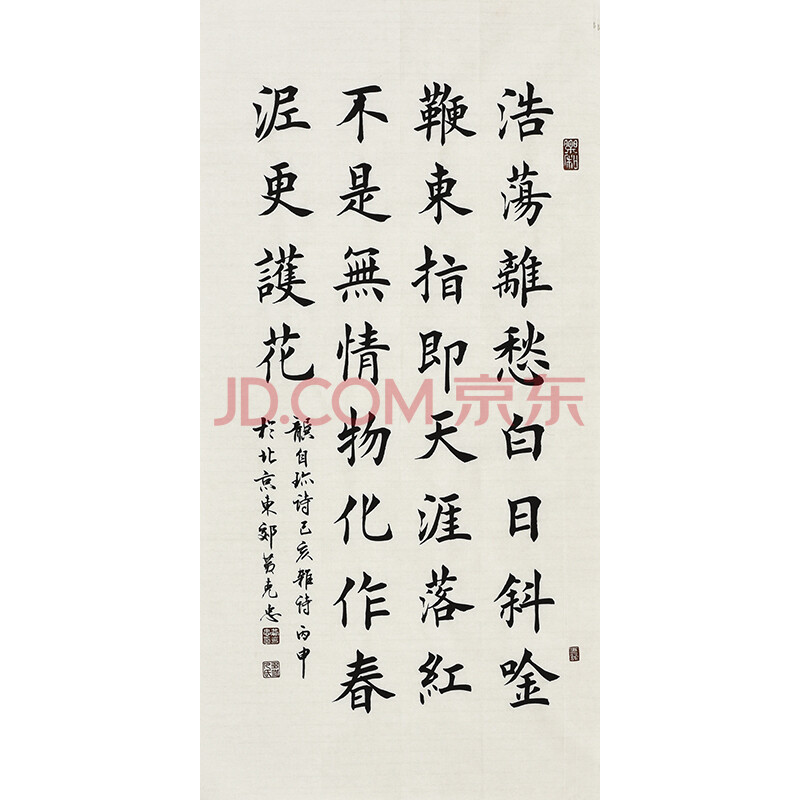 浩蕩離愁白日斜唫
鞭東指即天涯落紅
不是無情物化作春
泥更護花
龔自珍詩己亥雜詩丙申
於北京東郊黄克忠
JD.COM 京东